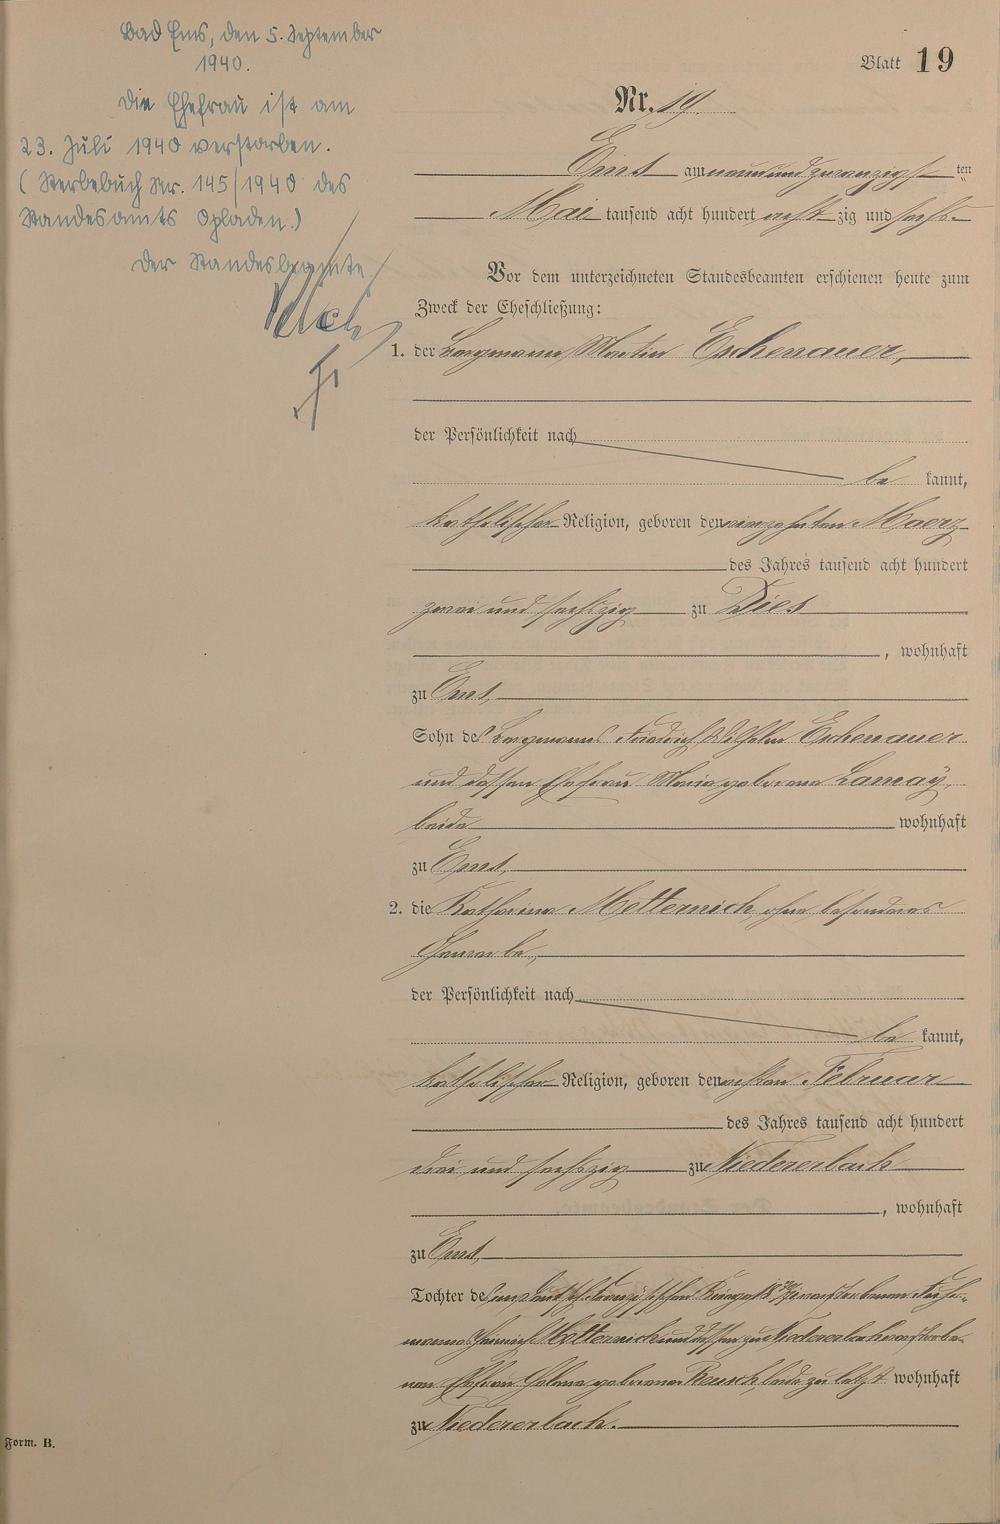 Bad Ems, den 5. September
1940.
Die Ehefrau ist am
23. Juli 1940 verstorben.
(Sterbebuch Nr. 145/1940 des
Standesamts Opladen.)
Der Standesbeamte.
Blatt 19
Nr. 19.
Ems am neunundzwanzigsten
Mai tausend acht hundert acht zig und sechs
Vor dem unterzeichneten Standesbeamten erschienen heute zum
Zweck der Eheschließung:
1. der Bergmann Martin Eschenauer,
der Persönlichkeit nach
be kannt,
katholischer Religion, geboren den Maerz
des Jahres tausend acht hundert
zwei und sechszig zu Diez
, wohnhaft
zu Ems,
Sohn des Bergmanns Friedrich Wilhelm Eschenauer
und dessen Ehefrau Maria geborene Lamaÿ,
beide wohnhaft
zu Ems,
2. die Katharina Metternich, ohne besonderes
Gewerbe,
der Persönlichkeit nach
be kannt,
katholischer Religion, geboren den achten Februar
des Jahres tausend acht hundert
drei und sechszig zu Niedererbach
, wohnhaft
zu Ems,
Tochter des im deutsch-französischen Kriege 1870/71 verstorbenen Fuhr-
manns Heinrich Metternich und dessen zu Niedererbach verstorbe-
nen Ehefrau Helena geborene Reusch, beide zu letzt wohnhaft
zu Niedererbach.
Form. B.